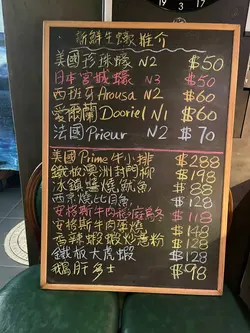 新鮮生蠔推介
美國珍珠蠔 N2 $50
日本宮城蠔 N3 $50
西班牙Arousa N2 $60
愛爾蘭Dooriel N1 $60
法國Prieur N2 $70
美國Prime牛小排 $288
鐵板澳洲封門柳 $198
冰鎮醬燒魷魚 $88
西京燒比目魚 $128
安格斯牛肉 烏冬 $118
安格斯牛肉 燒 $148
香辣蝦蝦炒意粉 $128
鐵板大虎蝦 $128
鵝肝多士 $98